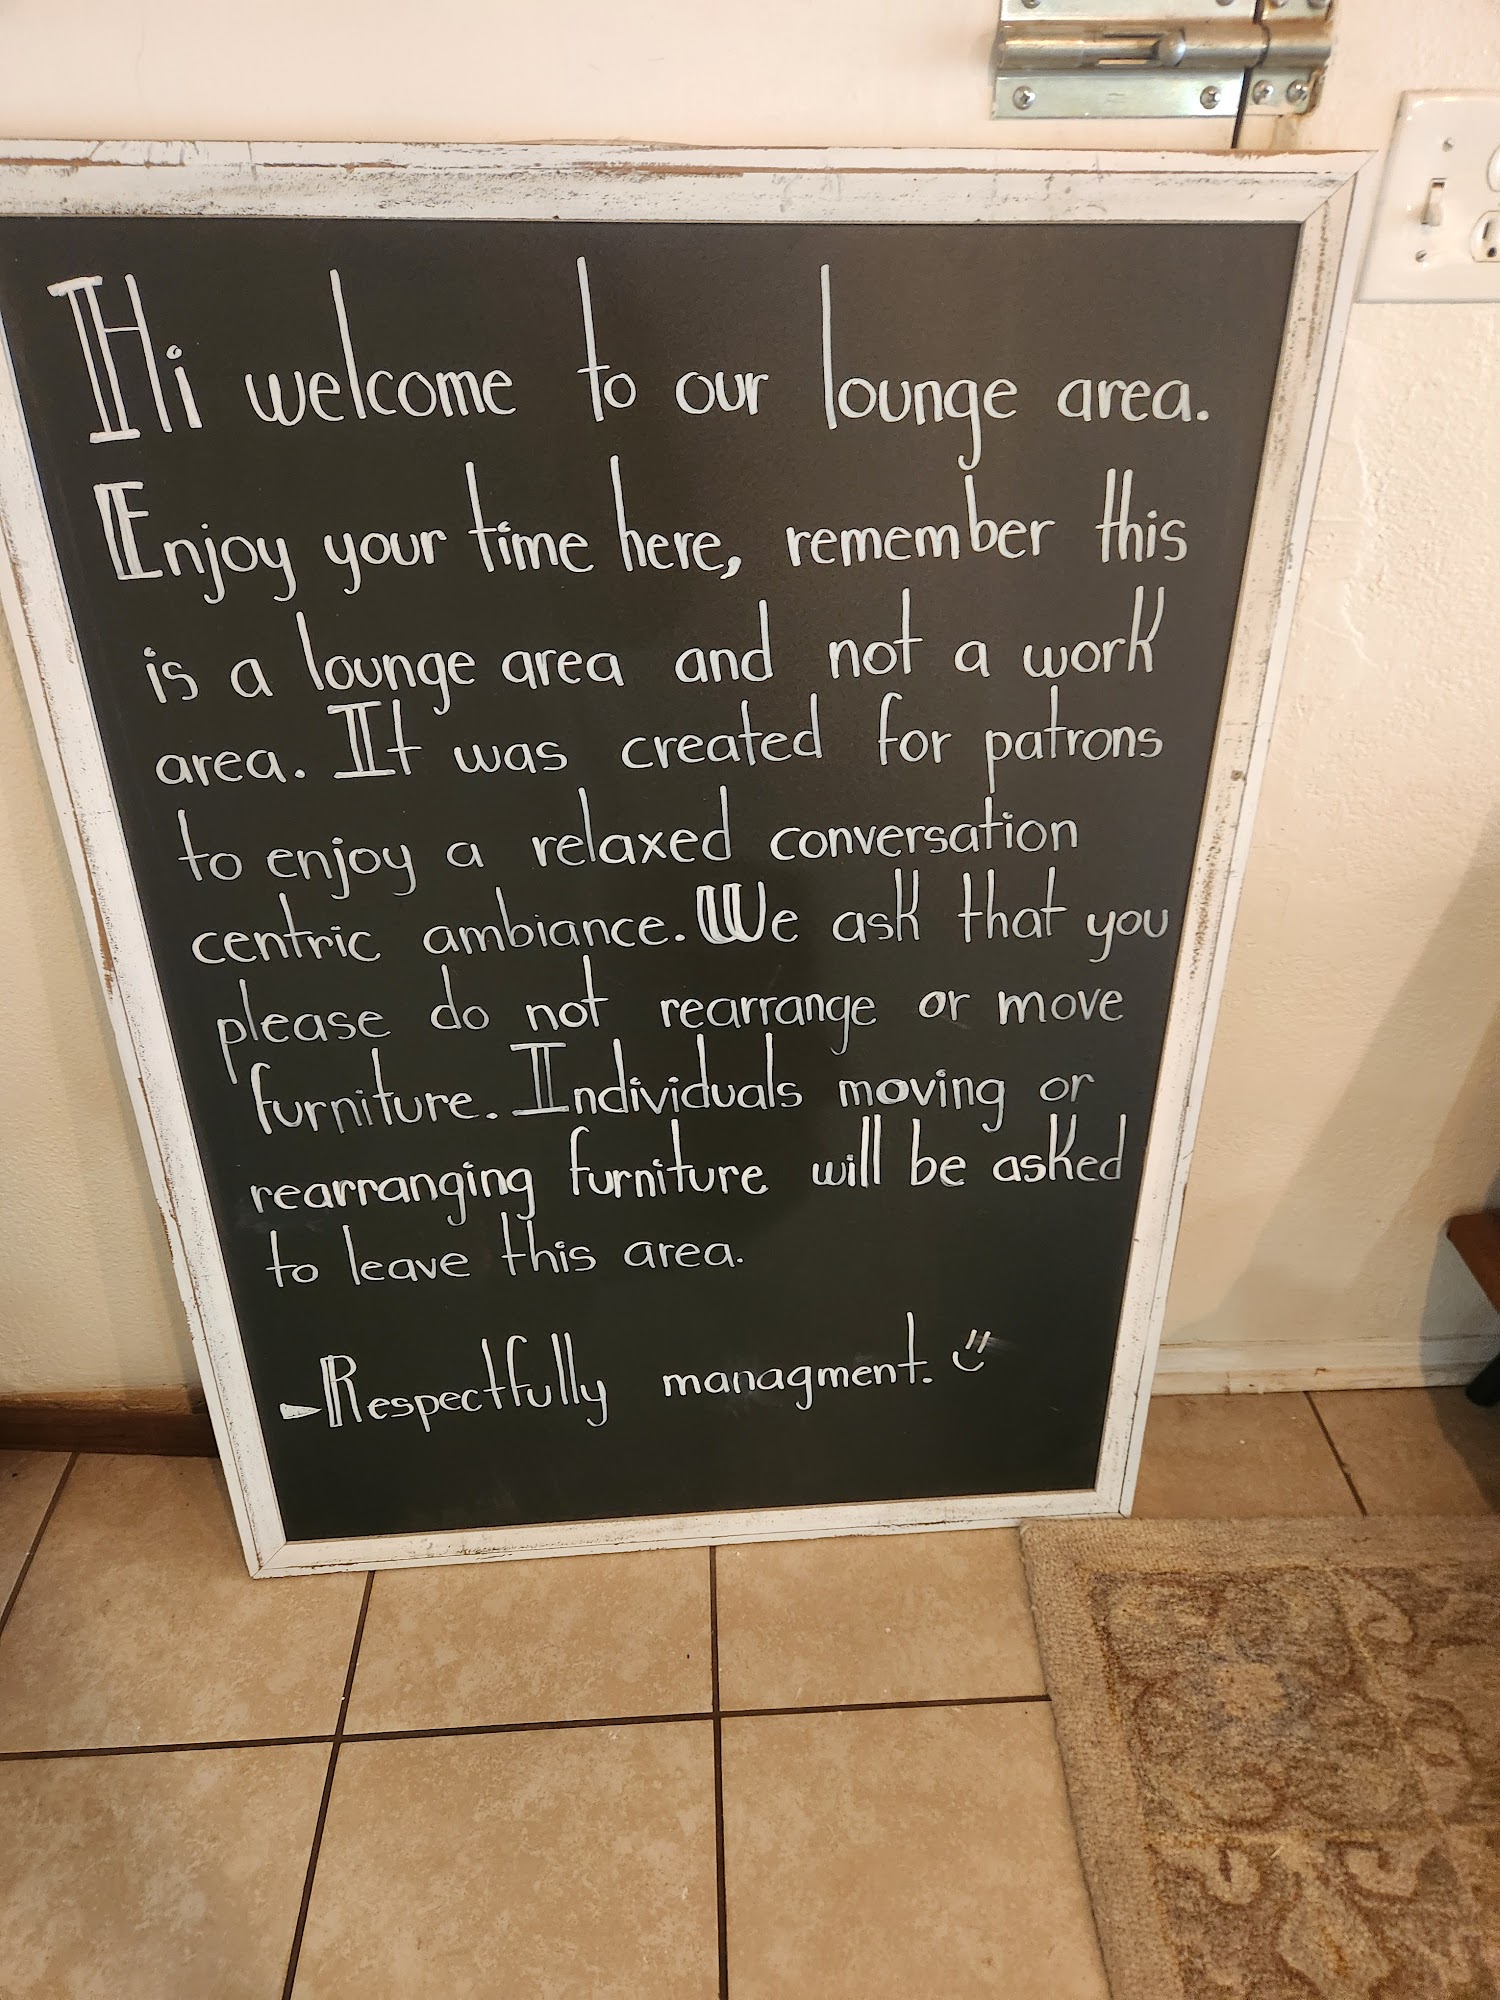 Hi welcome to our lounge area.
Enjoy your time here, remember this
is a lounge area and not a work
area. It was created for patrons
to enjoy a relaxed conversation
centric ambiance. We ask that you
please do not rearrange or move
furniture. Individuals moving or
rearranging furniture will be asked
to leave this area.
-Respectfully managment. ü